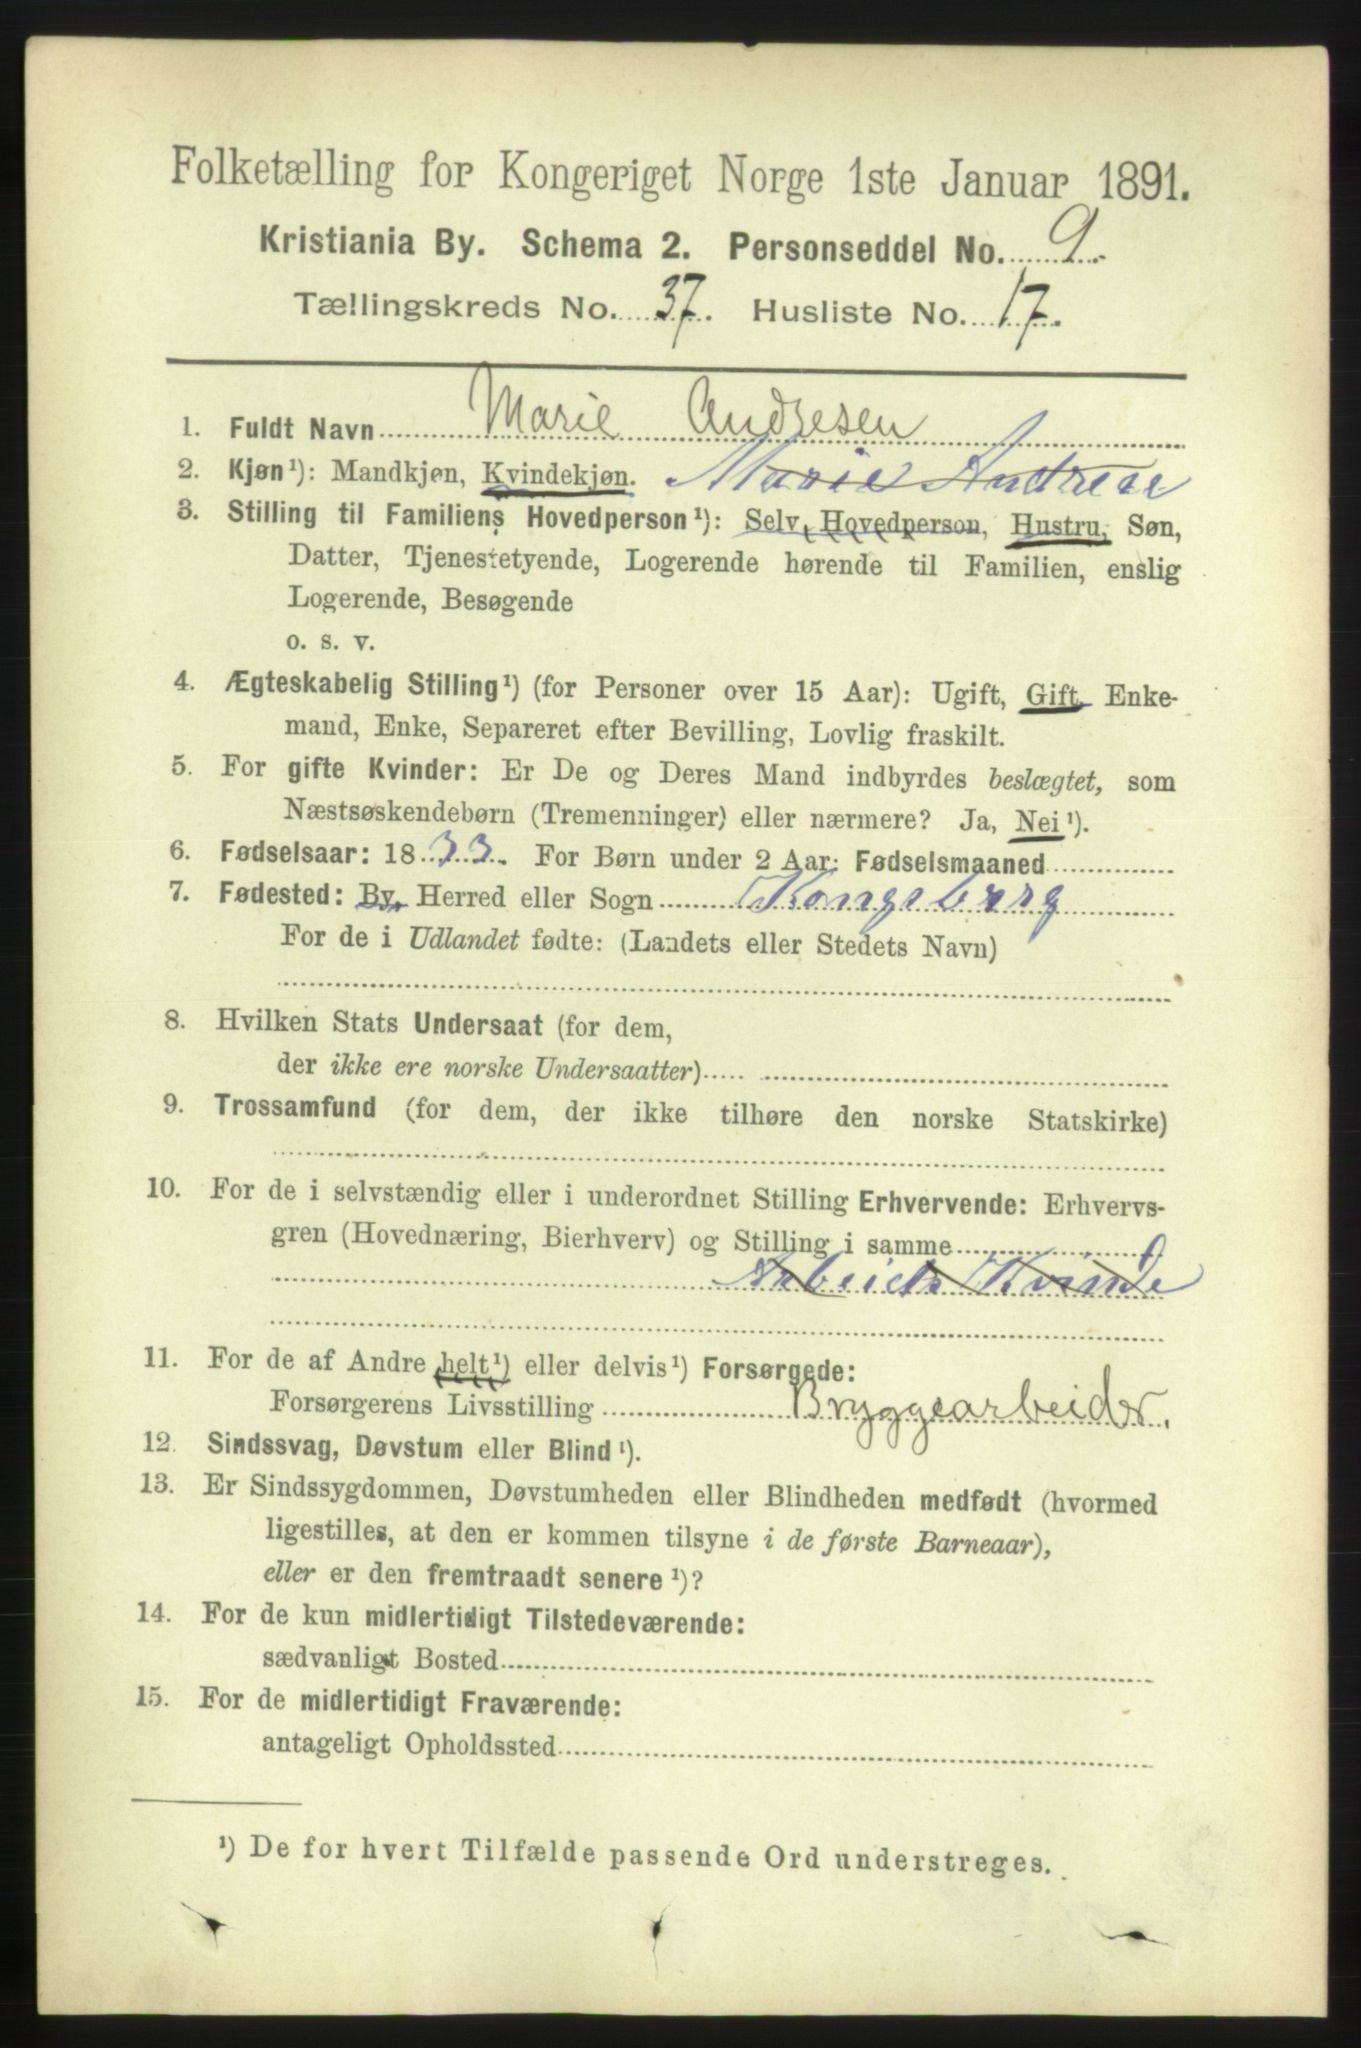 Folketælling for Kongeriget Norge 1ste Januar 1891.
Kristiania By. Schema 2. Personseddel No. 9.
Tællingskreds No. 37. Husliste No. 17.
1. Fuldt Navn Marie Andresen
2. Kjøn¹): Mandkjøn, Kvindekjøn. Marie Andrese
3. Stilling til Familiens Hovedperson¹): Selv, Hovedperson, Hustru, Søn,
Datter, Tjenestetyende, Logerende hørende til Familien, enslig
Logerende, Besøgende
o. s. v.
4. Ægteskabelig Stilling¹) (for Personer over 15 Aar): Ugift, Gift, Enke-
mand, Enke, Separeret efter Bevilling, Lovlig fraskilt.
5. For gifte Kvinder: Er De og Deres Mand indbyrdes beslægtet, som
Næstsøskendebørn (Tremenninger) eller nærmere? Ja, Nei¹).
6. Fødselsaar: 1833. For Børn under 2 Aar: Fødselsmaaned
7. Fødested: By, Herred eller Sogn Kongsberg
For de i Udlandet fødte: (Landets eller Stedets Navn)
8. Hvilken Stats Undersaat (for dem,
der ikke ere norske Undersaatter)
9. Trossamfund (for dem, der ikke tilhøre den norske Statskirke)
10. For de i selvstændig eller i underordnet Stilling Erhvervende: Erhvervs-
gren (Hovednæring, Bierhverv) og Stilling i samme
Arbeids Kvinde
11. For de af Andre helt¹) eller delvis¹) Forsørgede:
Forsørgerens Livsstilling Bryggearbeider.
12. Sindssvag, Døvstum eller Blind¹).
13. Er Sindssygdommen, Døvstumheden eller Blindheden medfødt (hvormed
ligestilles, at den er kommen tilsyne i de første Barneaar),
eller er den fremtraadt senere¹)?
14. For de kun midlertidigt Tilstedeværende:
sædvanligt Bosted
15. For de midlertidigt Fraværende:
antageligt Opholdssted
¹) De for hvert Tilfælde passende Ord understreges.